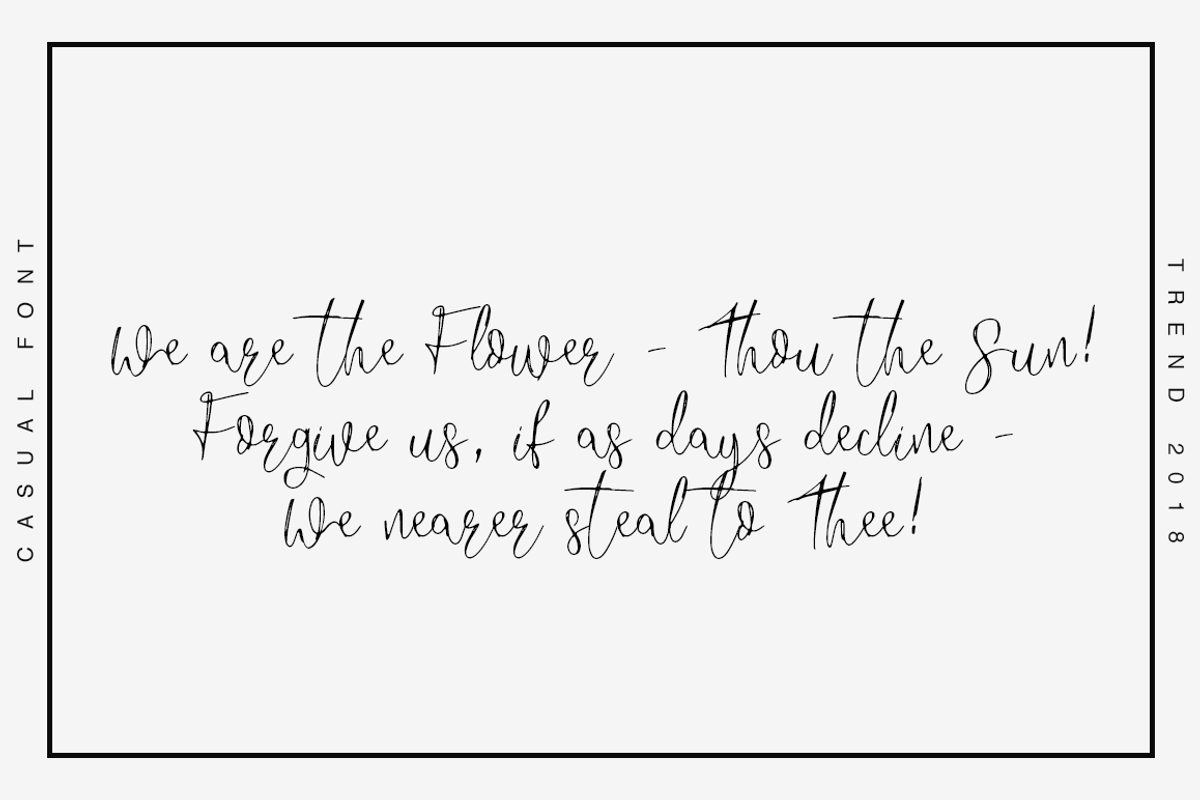 CASUAL FONT
We are the Flower - Thou the Sun!
Forgive us, if as days decline -
We nearer steal to Thee!
TREND 2018